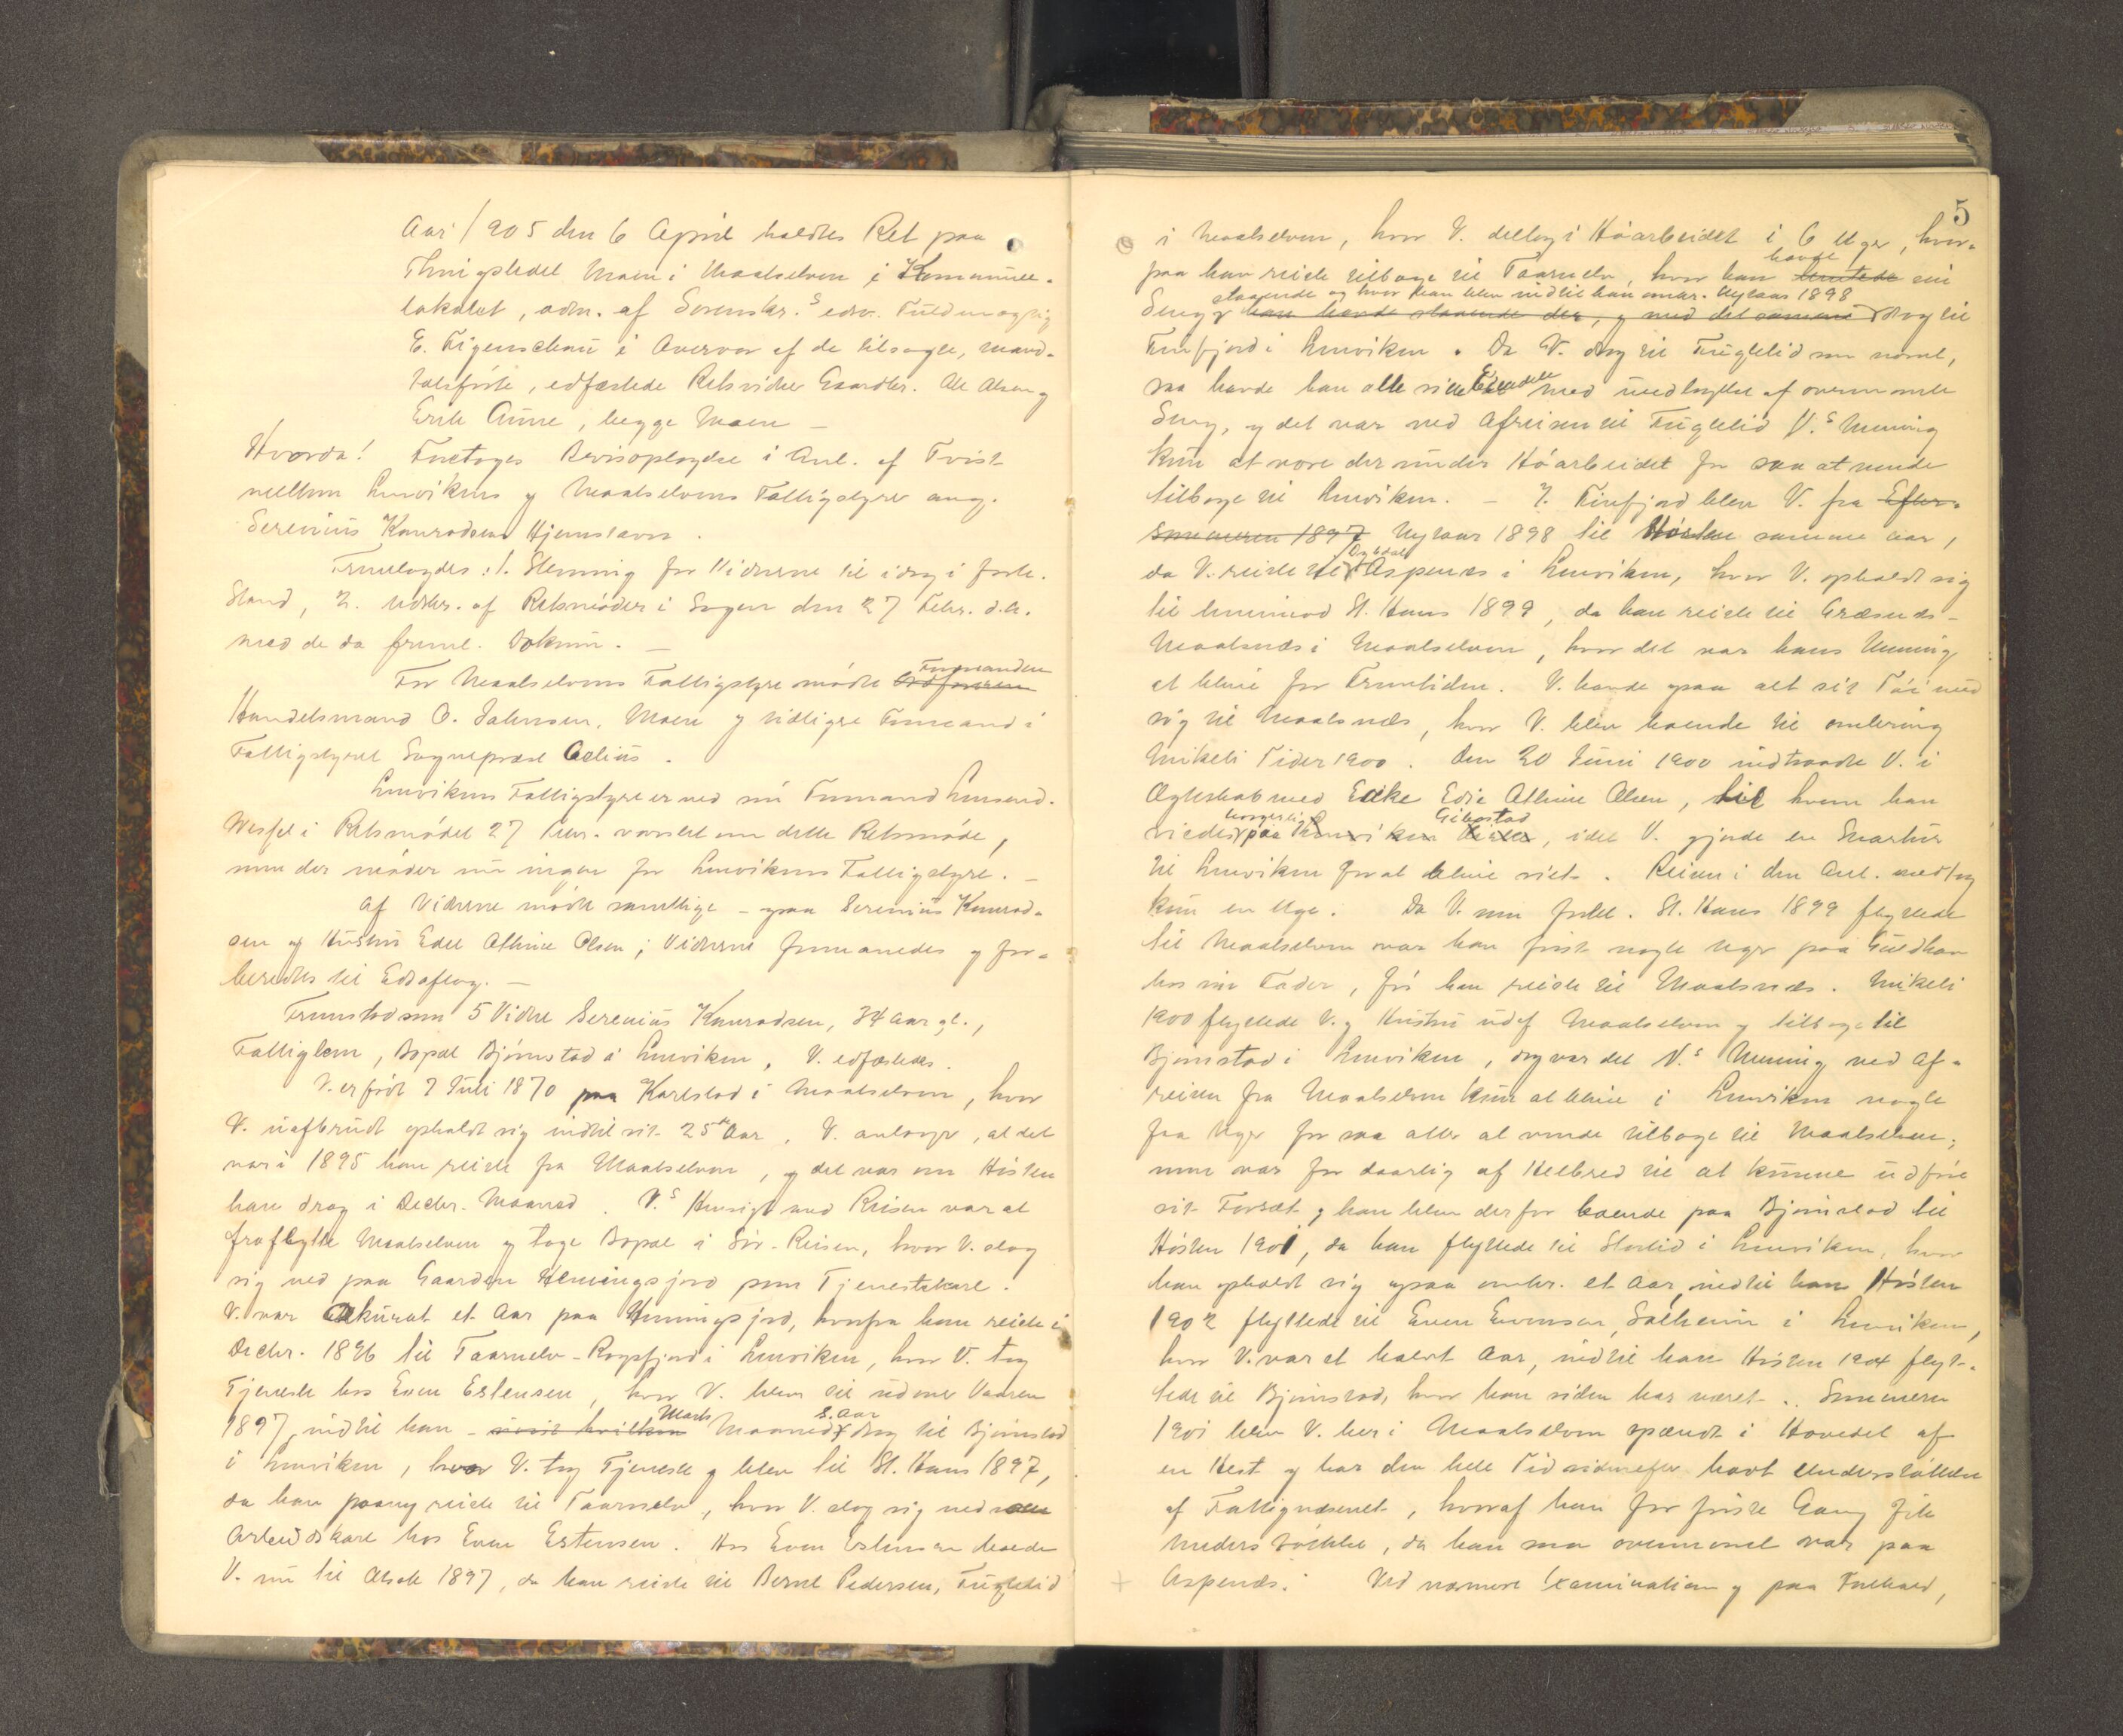 Aar 1905 den 6 April holdtes Ret paa
Thingstedet Moen i Maalselven i Kommune-
lokalet, adm. af Sorenskr.s edsv. Fuldmægtig
E. Figenschau i Overvær af de tilsagte, mand-
talsførte, edfæstede Retsvidner Gaardbr. Ole Olsen og
Erik Aune, begge Moen —
Hvorda! Foretoges Bevisoptagelse i Anl. af Tvist
mellem Lenvikens og Maalselvens Fattigstyrer ang.
Serenius Konradsens Hjemstavn.
Fremlagdes: 1. Stevning for Vidnerne til idag i fork.
Stand, 2. Udskr. af Retsmøder i Sagen den 27 Febr. d.A.
med de da freml. Dokum. —
For Maalselvens Fattigstyre mødte Ordføreren Formanden
Handelsmand O. Johnsen, Moen og tidligere Formand i
Fattigstyret Sogneprest Arlius.
Lenvikens Fattigstyre er ved sin Formand Lensmd.
Wessel i Retsmødet 27 Febr. varslet om dette Retsmøde,
men der møder nu ingen for Lenvikens Fattigstyre. —
Af Vidnerne mødte samtlige – ogsaa Serenius Konrad-
sen og Hustru Edel Athine Olsen; Vidnerne formanedes og for-
beredtes til Edsaflæg. —
Fremstod som 5 Vidne Serenius Konradsen, 34 Aar gl.,
Fattiglem, Bopæl Bjørnstad i Lenviken. V. edfæstedes.
V. er født 7 Juli 1870 paa Karlstad i Maalselven, hvor
V. uafbrudt opholdt sig indtil sit 25de Aar. V. antager, at det
var i 1895 han reiste fra Maalselven, og det var om Høsten
han drog i Decbr. Maaned. V.s Hensigt med Reisen var at
fraflytte Maalselven og tage Bopæl i Sør-Reisen, hvor V. slog
sig ned paa Gaarden Hemingsjord som Tjenestekarl.
V. var Akkurat et Aar paa Hemingsjord, hvorfra han reiste i
Decbr. 1896 til Taarnelv-Rossfjord i Lenviken, hvor V. tog
Tjeneste hos Even Estensen, hvor V. blev til udover Vaaren
1897, indtil han – sidst hvilken Marts Maaned s. Aar drog til Bjørnstad
i Lenviken, hvor V. tog Tjeneste og blev til St. Hans 1897,
da han paany reiste til Taarnelv, hvor V. slog sig ned som
Arbeidskarl hos Even Estensen. Hos Even Estensen boede
V. nu til Olsok 1897, da han reiste til Bernt Pedersen, Fuglelid
5
i Maalselven, hvor V. deltog i Høarbeidet i 6 Uger, hvor-
paa han reiste tilbage til Taarnelv hvor han hentede havde sin
staaende og hvor han blev indtil han omkr. Nytaar 1898
Seng og han havde staaende der, og med det samme drog til
Finfjord i Lenviken. Da V. drog til Fuglelid som nævnt,
saa havde han alle sine Eiendele med undtagelse af ovennævnte
Seng, og det var ved Afreisen til Fuglelid V.s Mening
kun at være der under Høarbeidet for saa at vende
tilbage til Lenviken. – I Finfjord blev V. fra Efter-
sommeren 1897 Nytaar 1898 til Høsten samme Aar,
da V. reiste til Aspenes i Lenviken, hvor V. opholdt sig
til henimod St. Hans 1899, da han reiste til Græsnes-
Maalsnæs i Maalselven, hvor det var hans Mening
at blive for Fremtiden. V. havde ogsaa alt sit Tøi med
sig til Maalsnæs, hvor V. blev boende til omkring
Mikeli Tider 1900. Den 20 Juni 1900 indtraadte V. i
Ægteskab med Enke Edle Athine Olsen, til hvem han
viedes borgerlig paa Lenviken Kirke Gibostad, idet V. gjorde en Snartur
til Lenviken for at blive viet. Reisen i den Anl. medtog
kun en Uge. Da V. som fortalt. St. Hans 1899 flyttede
til Maalselven var han først nogle Uger paa Guldhav
hos sin Fader, før han reiste til Maalsnæs. Mikeli
1900 flyttede V. og Hustru ud af Maalselven og tilbage til
Bjørnstad i Lenviken, dog var det V.s Mening ved Af-
reisen fra Maalselven kun at blive i Lenviken nogle
faa Uger for saa atter at vende tilbage til Maalselven;
men var for daarlig af Helbred til at kunne udføre
sit Forsæt, og han blev derfor boende paa Bjørnstad til
Høsten 1901, da han flyttede til Storlid i Lenviken, hvor
han opholdt sig ogsaa omkr. et Aar, indtil han Høsten
1902 flyttede til Even Evensen, Solheim i Lenviken,
hvor V. var et halvt Aar, indtil han Høsten 1904 flyt-
tede til Bjørnstad, hvor han siden har været. . Sommeren
1901 blev V. her i Maalselven spændt i Hovedet af
en Hest og har den hele Tid sidenefter havt Understøttelse
af Fattigvæsenet, hvoraf han for første Gang fik
Understøttelse, da han som ovennævnt var paa
Aspenes. Ved nærmere Examination og paa Forhold,